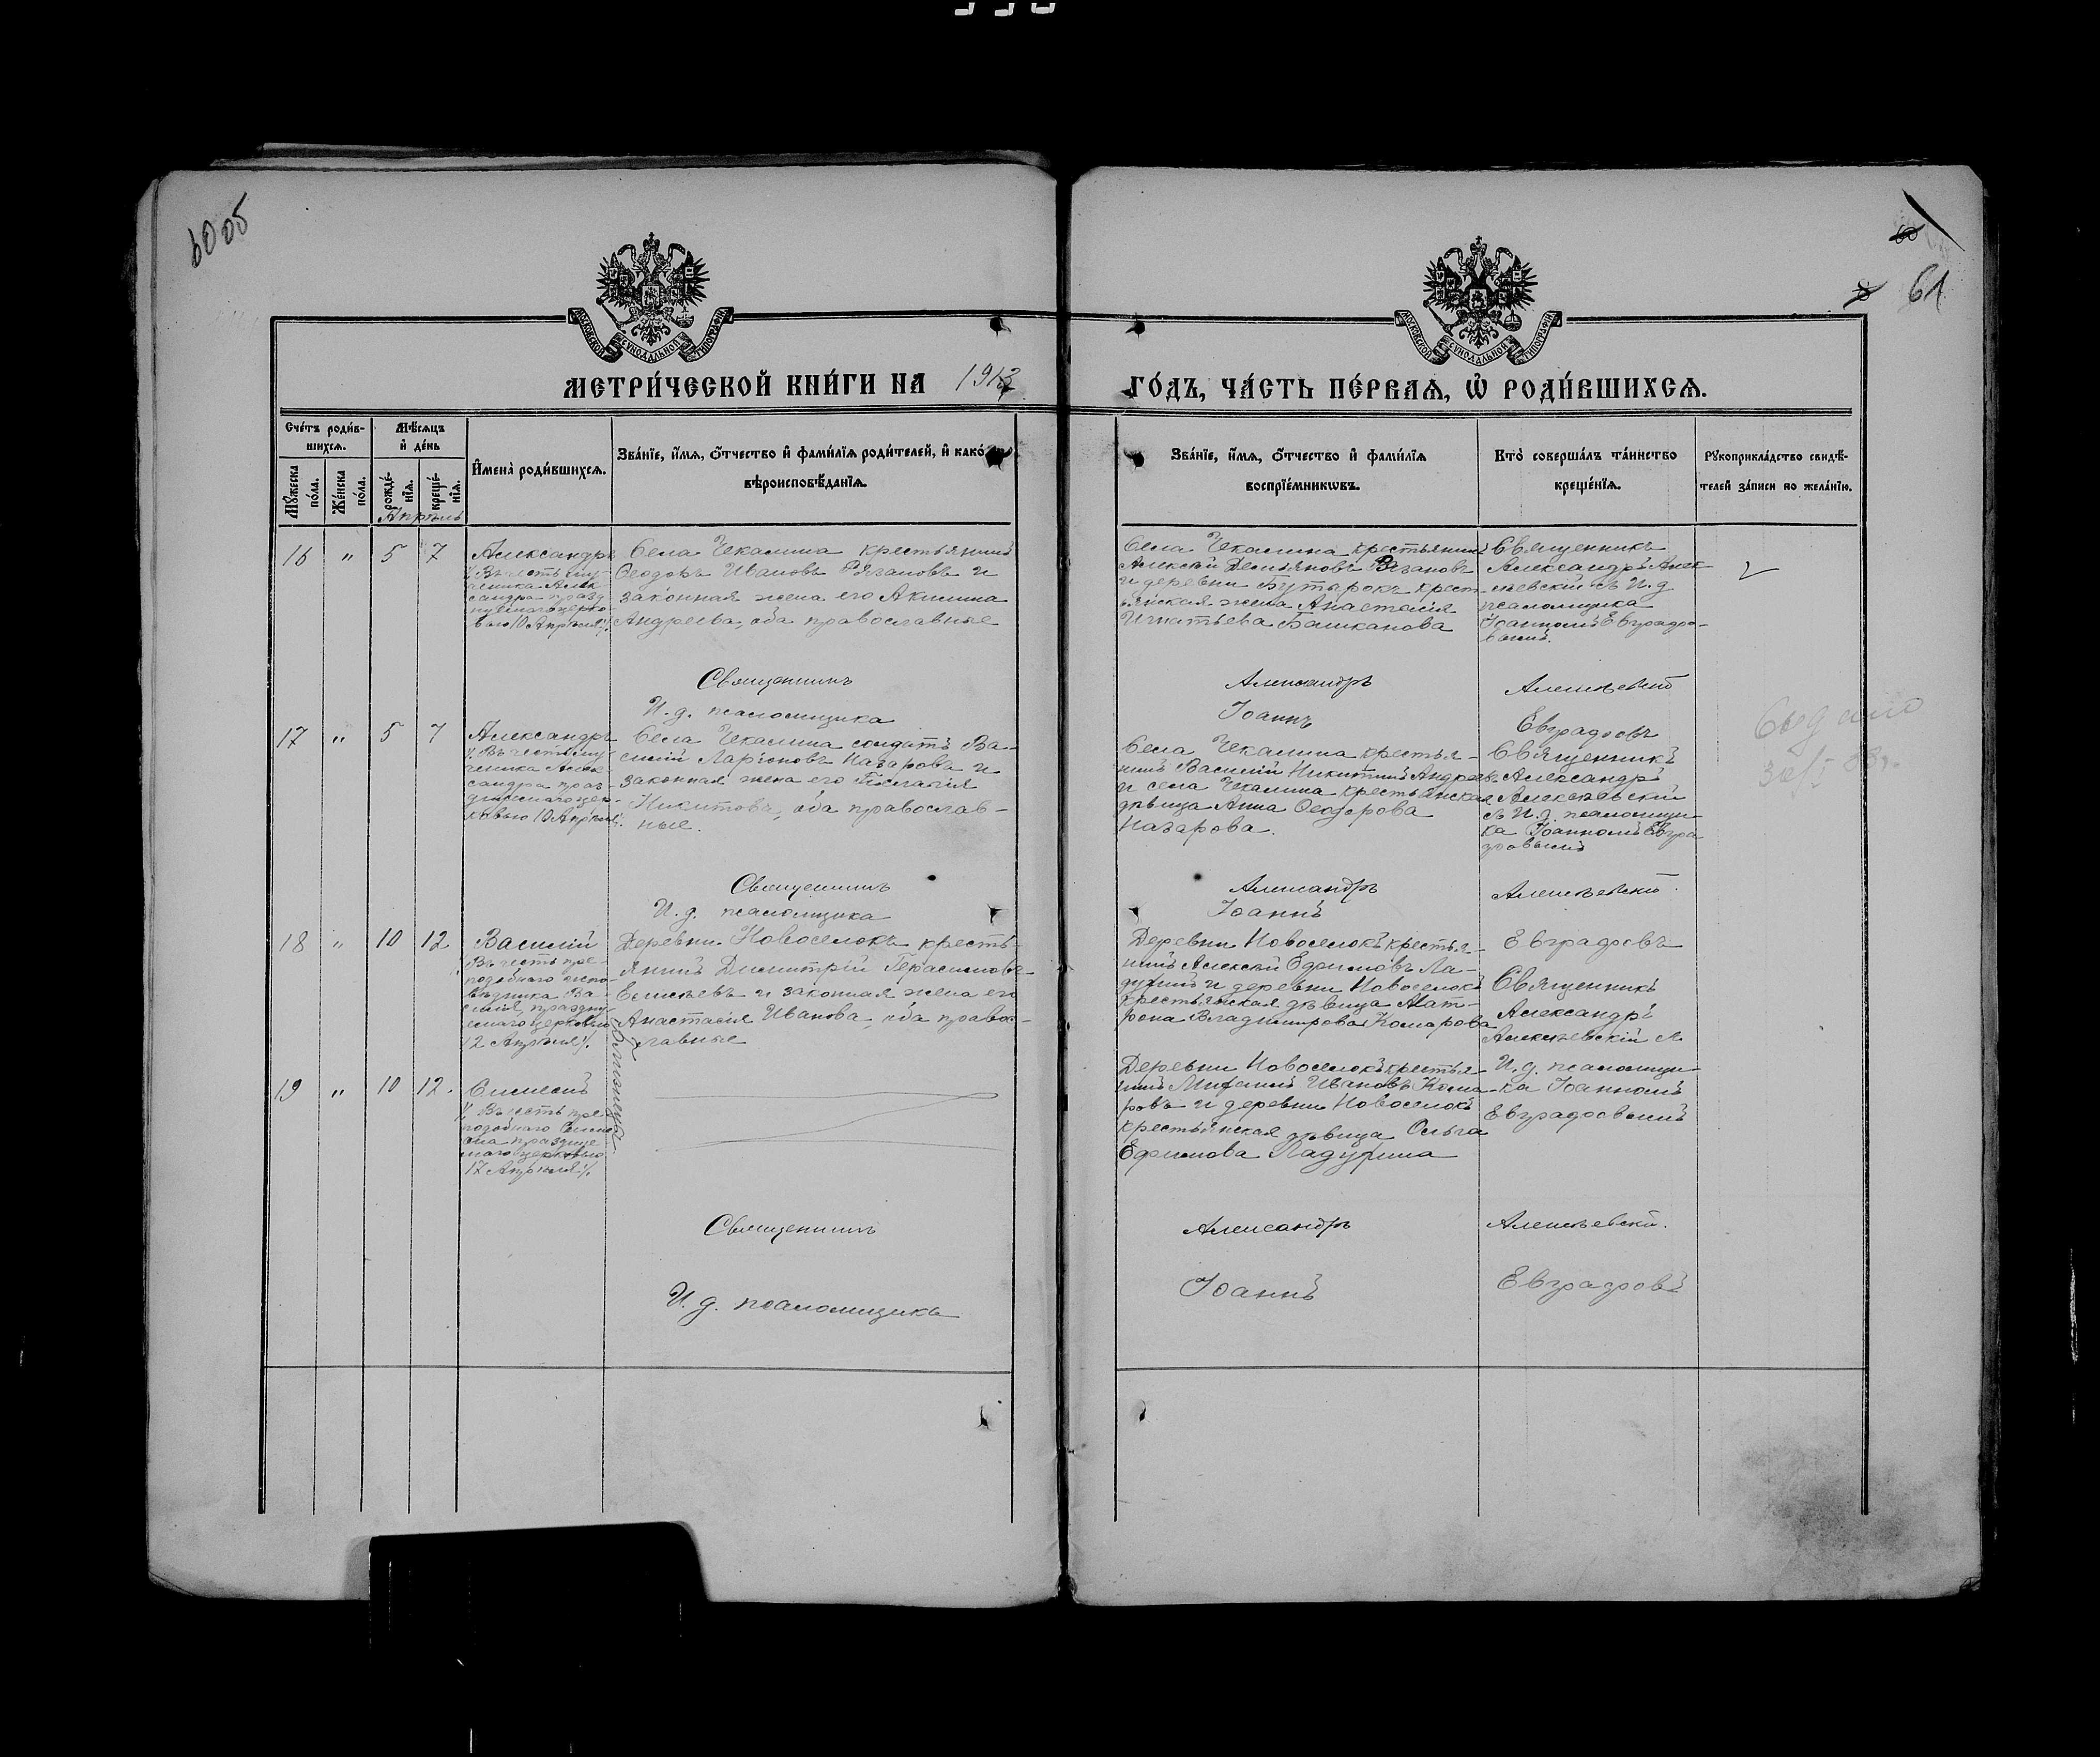 60 об
61
МОСКОВСКОЙ СУНОДАЛЬНОЙ ТИПОГРАФІИ
МОСКОВСКОЙ СУНОДАЛЬНОЙ ТИПОГРАФІИ
МЕТРИ́ЧЕСКОЙ КНИ́ГИ НА 1913
ГО́ДЪ, ЧА́СТЬ ПЕ́РВАѦ, Ѡ РОДИ́ВШИХСѦ.
Сче́тъ роди́в-
шихсѧ.
Мꙋ́жеска по́ла.
Же́нска по́ла.
Мѣ́сѧцъ и де́нь
рожде́-нїѧ.
креще́-нїѧ.
Апрѣль
И҆мена̀ роди́вшихсѧ.
Зва́нїе, и҆́мѧ, ѻ҆́тчество и҆ фами́лїѧ роди́телей, и҆ како́го
вѣроисповѣ́данїѧ.
Зва́нїе, и҆́мѧ, ѻ҆́тчество и҆ фами́лїѧ
воспрїе́мникѡвъ.
Кто̀ соверша́лъ та́инство
креще́нїѧ.
Рꙋкоприкла́дство свидѣ́-
телей за́писи по жела́нїю.
16 " 5 7
Александръ
Въ честь му-
ченика Алек-
сандра празд-
нуемаго церко-
вью 10 Апрѣля
Села Чекалина крестьянинъ
Ѳеодоръ Ивановъ Рязановъ и
законная жена его Акилина
Андреева, оба православные
Села Чекалина крестьянинъ
Алексѣй Демьяновъ Рязановъ
и деревни Бутырокъ крест-
ьянская жена Анастасія
Игнатьева Башканова
Священникъ
Александръ Алек-
сѣевскій съ И. д
псаломщика
Іоанномъ Евградо-
вымъ.
Священникъ
Александръ
Алексѣевскій
И. д. псаломщика
Іоаннъ
Евградовъ
17 " 5 7
Александръ
Въ честь му-
ченика Алек-
сандра праз-
днуемаго цер-
ковью 10 Апрѣля
Села Чекалина солдатъ Ва-
силій Ларіоновъ Назаровъ и
законная жена его Пелагія
Никитова, оба православ-
ные.
Села Чекалина крестья-
нинъ Василій Никитинъ Андреевъ
и села Чекалина крестьянская
дѣвица Анна Ѳеодорова
Назарова.
Священникъ
Александръ
Алексѣевскій
съ И. д. псаломщи-
ка Іоанномъ Евгра-
довымъ
Священникъ
Александръ
Алексѣевскій.
И. д. псаломщика
Іоаннъ
Евградовъ
18 " 10 12
Василій
Въ честь пре-
подобнаго испо-
вѣдника Ва-
силія, праздну-
емаго церковью
12 Апрѣля
Деревни Новоселокъ кресть-
янинъ Димитрій Герасимовъ
Елисѣевъ и законная жена его
Анастасія Иванова, оба правос-
лавные
Деревни Новоселокъ крестья-
нинъ Алексѣй Ефимовъ Ла-
дугинъ и деревни Новоселокъ
крестьянская дѣвица Мат-
рона Владимирова Комарова
Священникъ
Александръ
Алексѣевскій съ
И. д. псаломщи-
ка Іоанномъ
Евградовымъ
Близнецы
19 " 10 12.
Симеонъ
Въ честь пре-
подобнаго Симе-
она праздне-
маго церковью
17 Апрѣля
Деревни Новоселокъ крестья-
нинъ Ивановъ Кома-
ровъ и деревни Новоселокъ
крестьянская дѣвица Ольга
Ефимова Ладугина
Священникъ
Александръ
Алексѣевскій.
И. д. псаломщика
Іоаннъ
Евградовъ